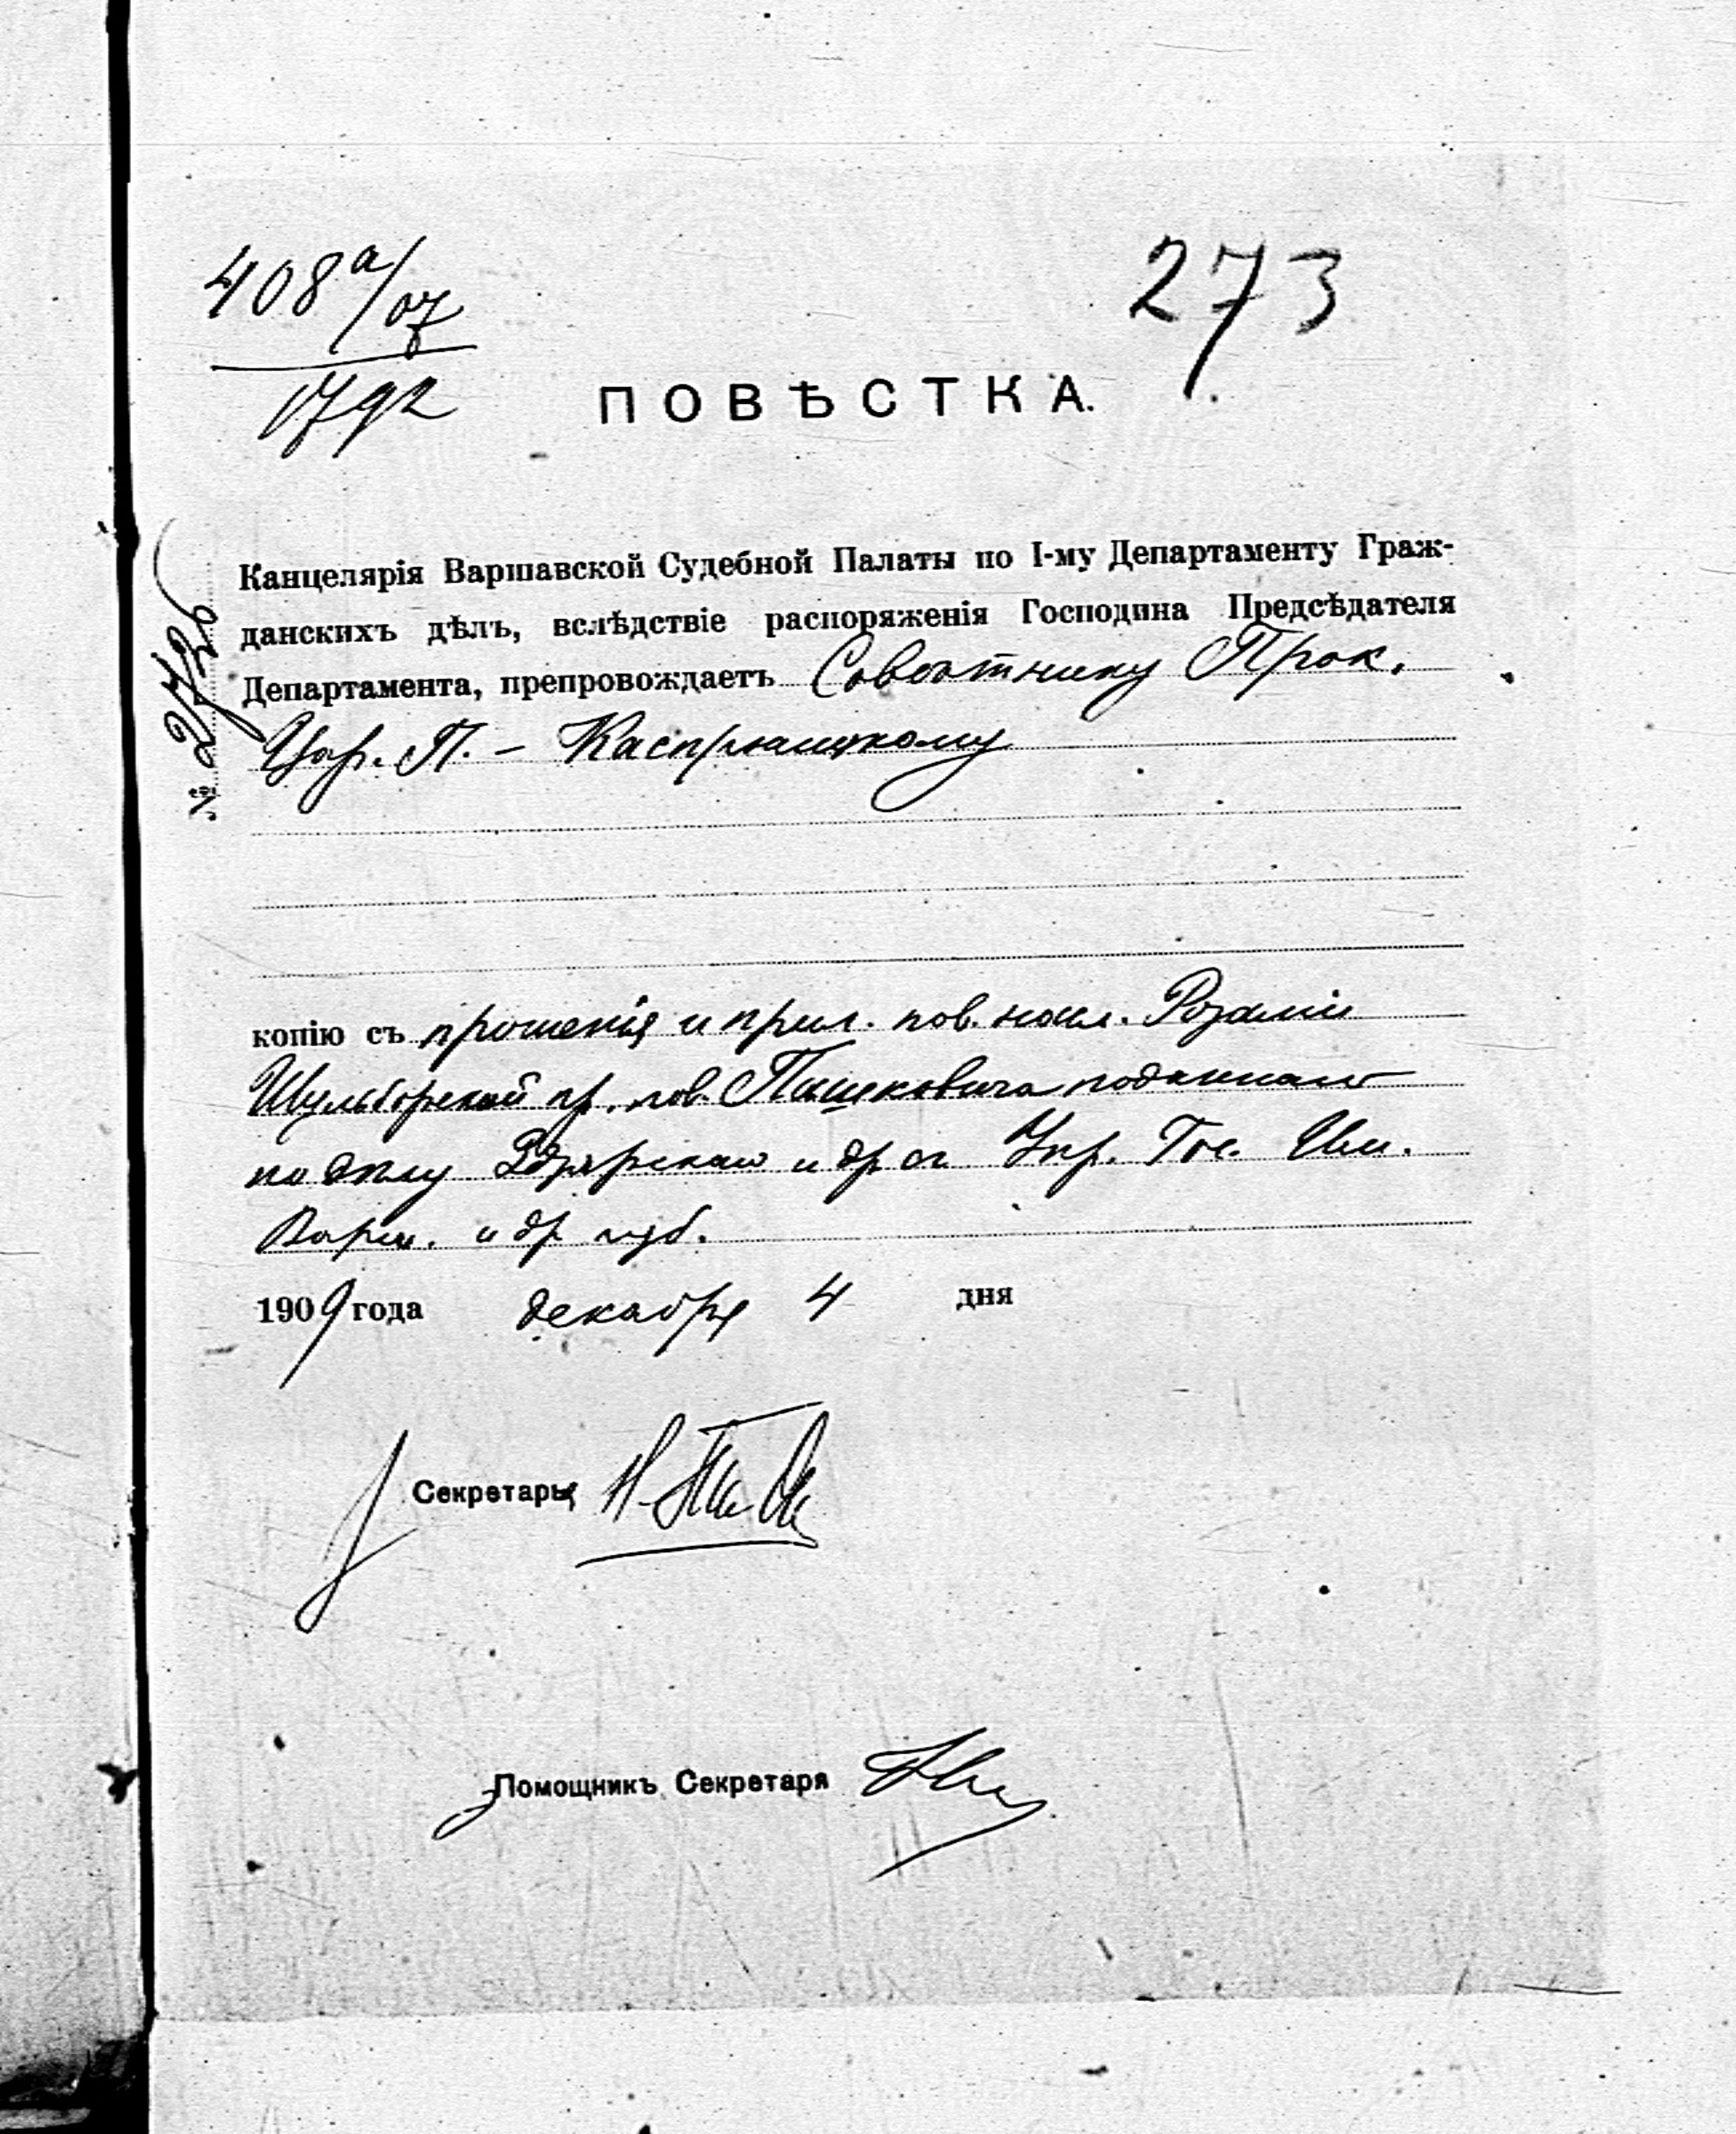 408а/07
1792
273
ПОВѢСТКА.
Канцелярія Варшавской Судебной Палаты по I-му Департаменту Граж-
данскихъ дѣлъ, вслѣдствіе распоряженія Господина Предсѣдателя
Департамента, препровождаетъ Совѣтнику Прок.
Цар. П. -
№
копію съ прошенія и прил. пов. насл. Розаліи
Шульборской пр. пов. Пашковича поданнаго
по дѣлу и др съ Упр. Гос. Им.
Варш. и др губ.
1909 года декабря 4 дня
Секретарь
Помощникъ Секретаря